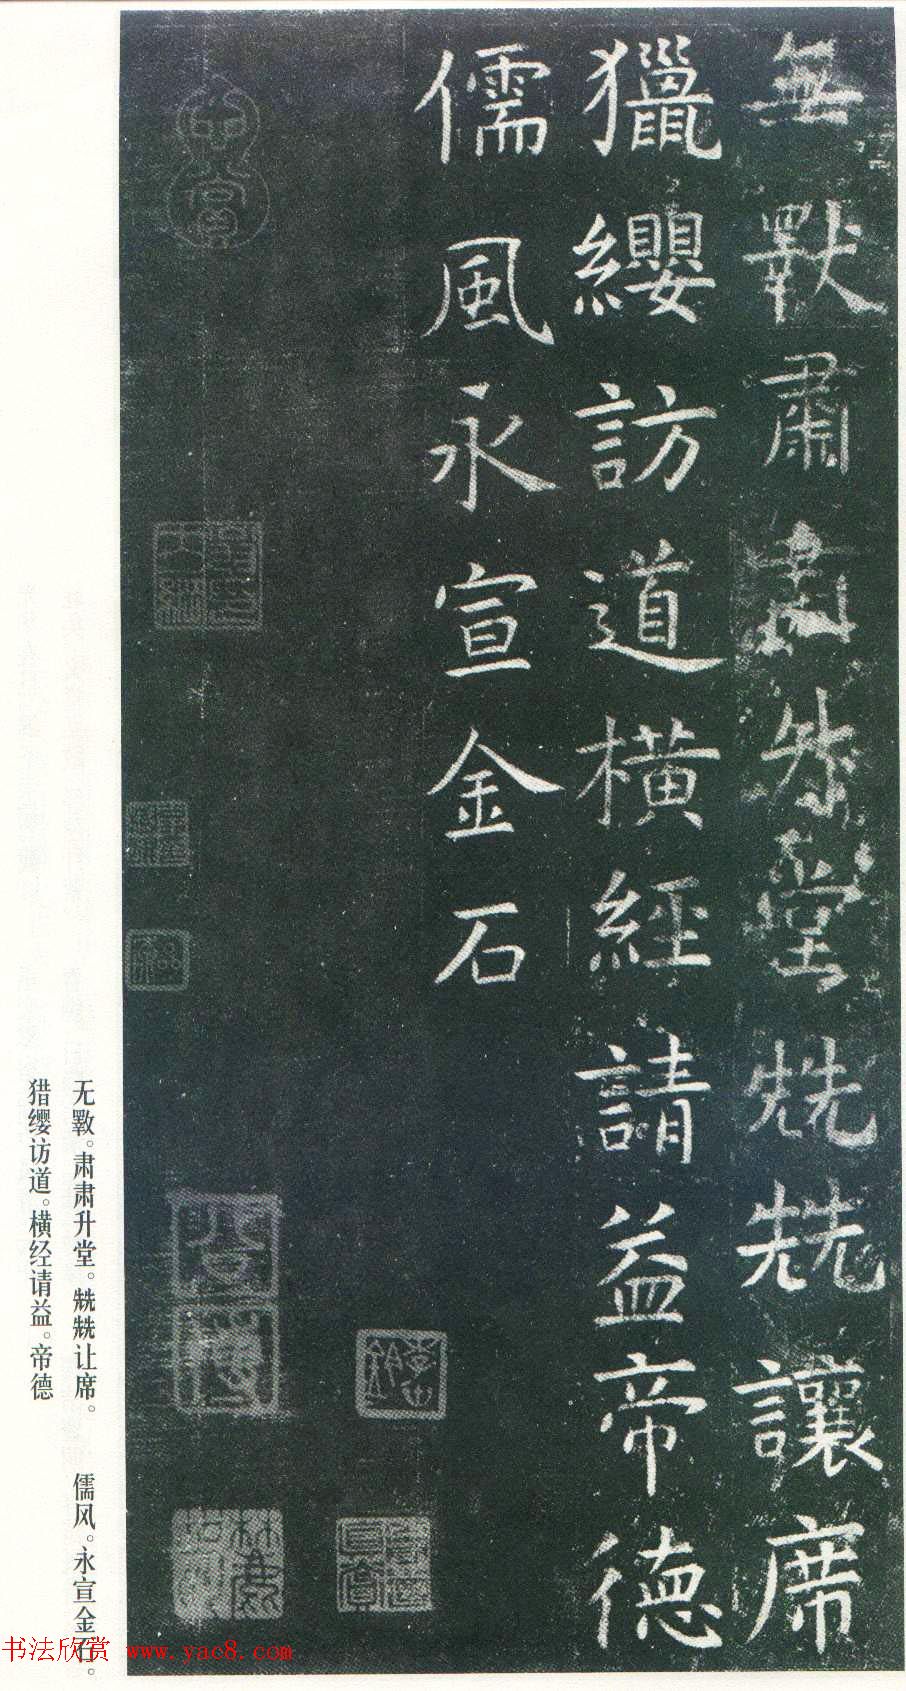 無斁肅肅升堂兟兟讓席
獵纓訪道橫經請益帝德
儒風永宣金石
无斁。肃肃升堂。兟兟让席。
猎缨访道。横经请益。帝德
儒风。永宣金石。
书法欣赏 www.yac8.com